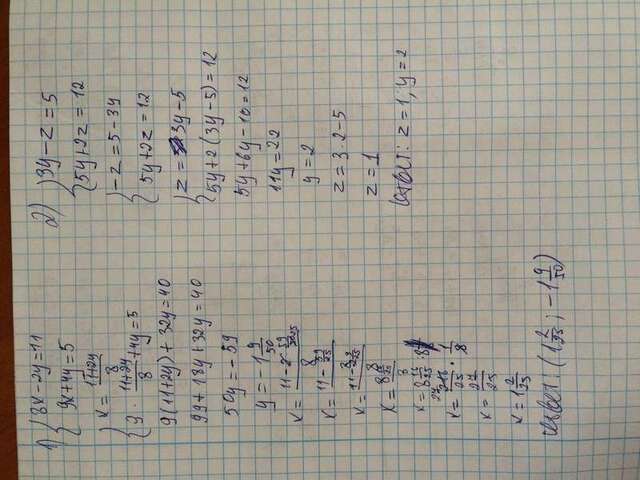 1) { 8x-2y=11
{ 9x+4y=5
{ x = (11+2y)/8
{ 9 · (11+2y)/8 + 4y=5
9(11+2y)+32y=40
99+18y+32y=40
50y=-59
y=-1 9/50
x=
x=
x=
x=
x=
x=
x=
x=1 2/25
Ответ: (1 2/25; -1 9/50)
2) { 3y-z=5
{ 5y+2z=12
{ -z=5-3y
{ 5y+2z=12
{ z=3y-5
{ 5y+2(3y-5)=12
5y+6y-10=12
11y=22
y=2
z=3·2-5
z=1
Ответ: z=1; y=2